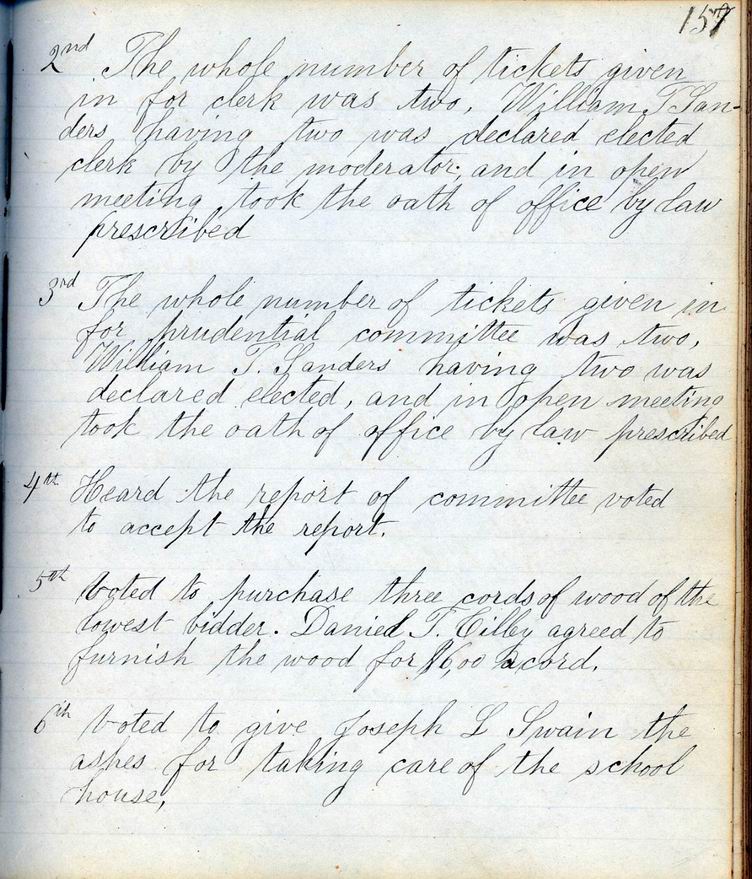 157
2nd The whole number of tickets given
in for clerk was two, William T San-
ders having two was declared elected
clerk by the moderator, and in open
meeting took the oath of office by law
prescribed
3rd The whole number of tickets given in
for prudential committee was two,
William T. Sanders having two was
declared elected, and in open meeting
took the oath of office by law prescribed
4th Heard the report of committee voted
to accept the report.
5th Voted to purchase three cords of wood of the
lowest bidder. Daniel T. Cilley agreed to
furnish the wood for $6,00 a cord.
6th Voted to give Joseph L Swain the
ashes for taking care of the school
house,